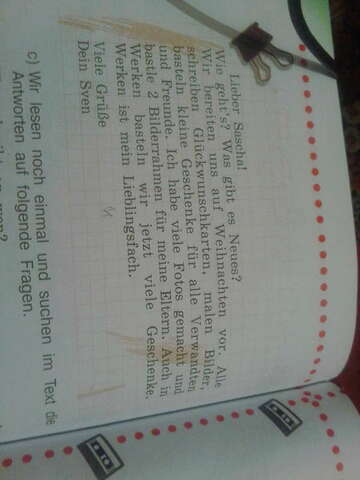 Lieber Sascha!
Wie geht's? Was gibt es Neues?
Wir bereiten uns auf Weihnachten vor. Alle
schreiben Glückwunschkarten, malen Bilder,
basteln kleine Geschenke für alle Verwandten
und Freunde. Ich habe viele Fotos gemacht und
bastle 2 Bilderrahmen für meine Eltern. Auch in
Werken basteln wir jetzt viele Geschenke.
Werken ist mein Lieblingsfach.
Viele Grüße
Dein Sven
c) Wir lesen noch einmal und suchen im Text die
Antworten auf folgende Fragen.